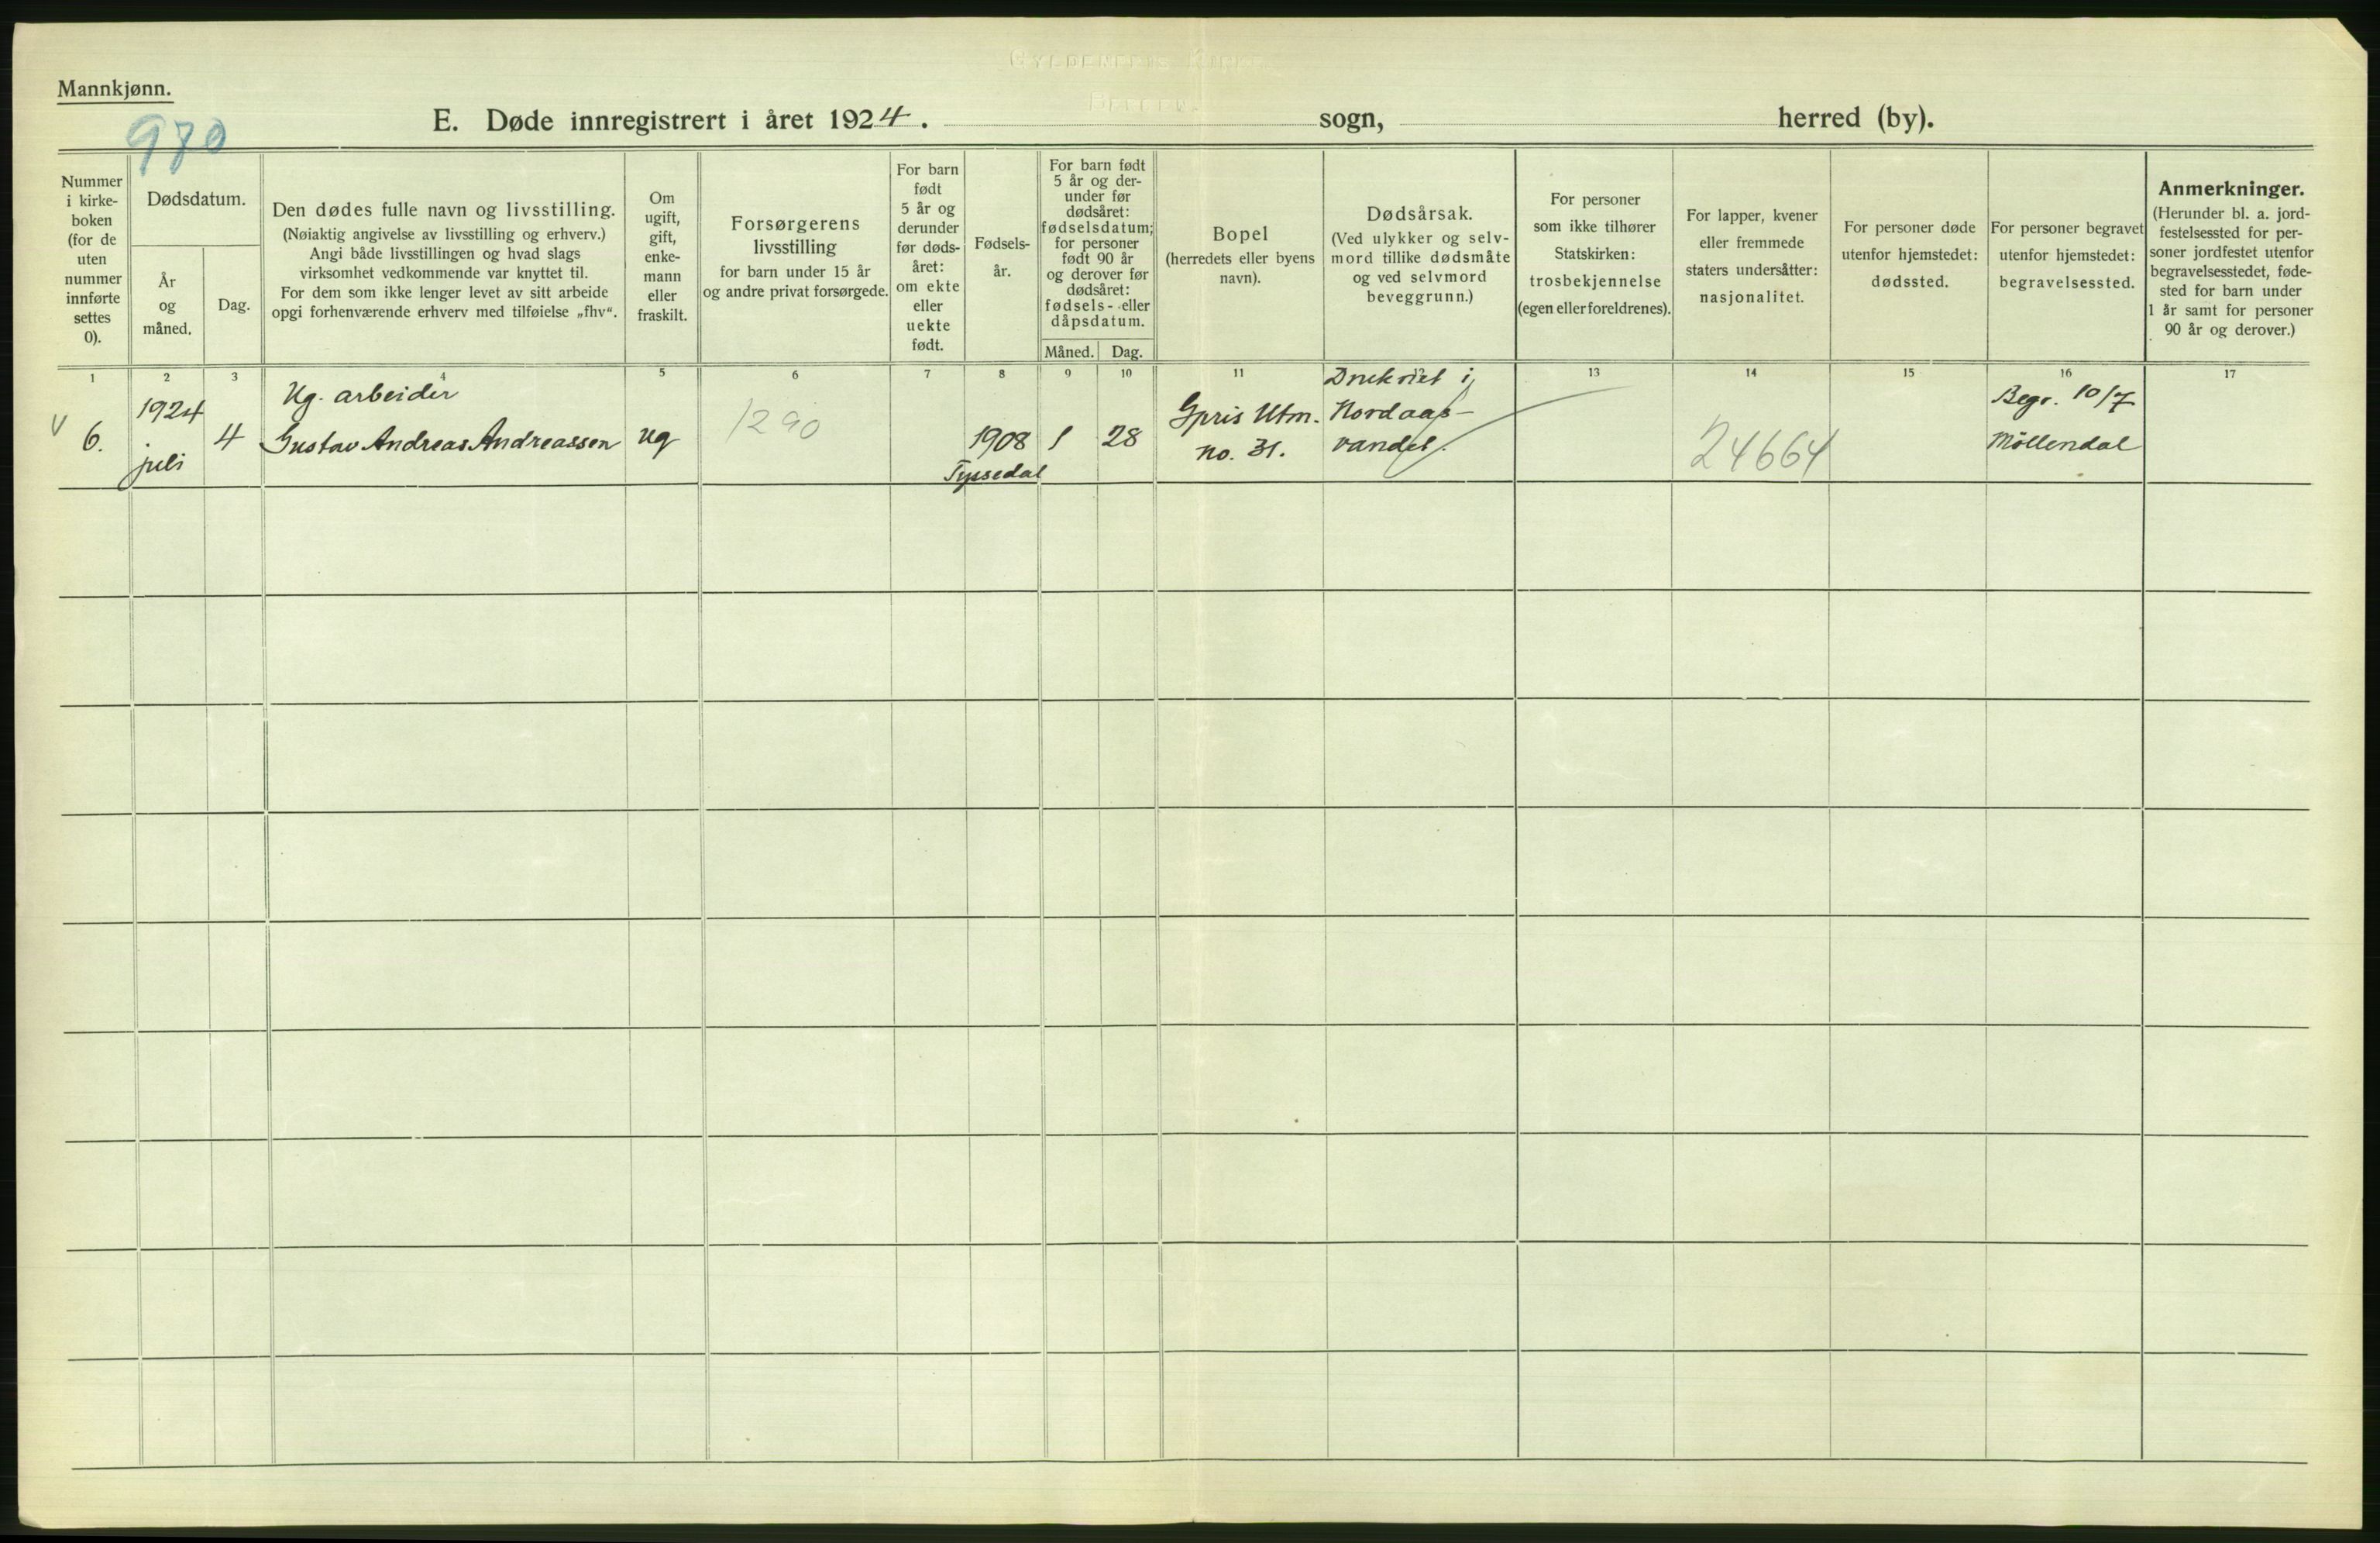 Mannkjønn.
970
E. Døde innregistrert i året 1924. sogn, herred (by).
Nummer
i kirke-
boken
(for de
uten
nummer
innførte
settes
0).
Dødsdatum.
År
og
måned.
Dag.
Den dødes fulle navn og livsstilling.
(Nøiaktig angivelse av livsstilling og erhverv.)
Angi både livsstillingen og hvad slags
virksomhet vedkommende var knyttet til.
For dem som ikke lenger levet av sitt arbeide
opgi forhenværende erhverv med tilføielse „fhv“.
Om
ugift,
gift,
enke-
mann
eller
fraskilt.
Forsørgerens
livsstilling
for barn under 15 år
og andre privat forsørgede.
For barn
født
5 år og
derunder
før døds-
året:
om ekte
eller
uekte
født.
Fødsels-
år.
For barn født
5 år og der-
under før
dødsåret:
fødselsdatum;
for personer
født 90 år
og derover før
dødsåret:
fødsels- eller
dåpsdatum.
Måned. Dag.
Bopel
(herredets eller byens
navn).
Dødsårsak.
(Ved ulykker og selv-
mord tillike dødsmåte
og ved selvmord
beveggrunn.)
For personer
som ikke tilhører
Statskirken:
trosbekjennelse
(egen eller foreldrenes).
For lapper, kvener
eller fremmede
staters undersåtter:
nasjonalitet.
For personer døde
utenfor hjemstedet:
dødssted.
For personer begravet
utenfor hjemstedet:
begravelsessted.
Anmerkninger.
(Herunder bl. a. jord-
festelsessted for per-
soner jordfestet utenfor
begravelsesstedet, føde-
sted for barn under
1 år samt for personer
90 år og derover.)
1 2 3 4 5 6 7 8 9 10 11 13 14 15 16 17
V 6.
1924
juli
4
Ug. arbeider
Gustav Andreas Andreassen
ug
1290
1908
Tyssedal
1
28
Gpris Utm.
No. 31.
Druknet i
Nordaas-
vandet.
24664
Begr. 10/7
Möllendal